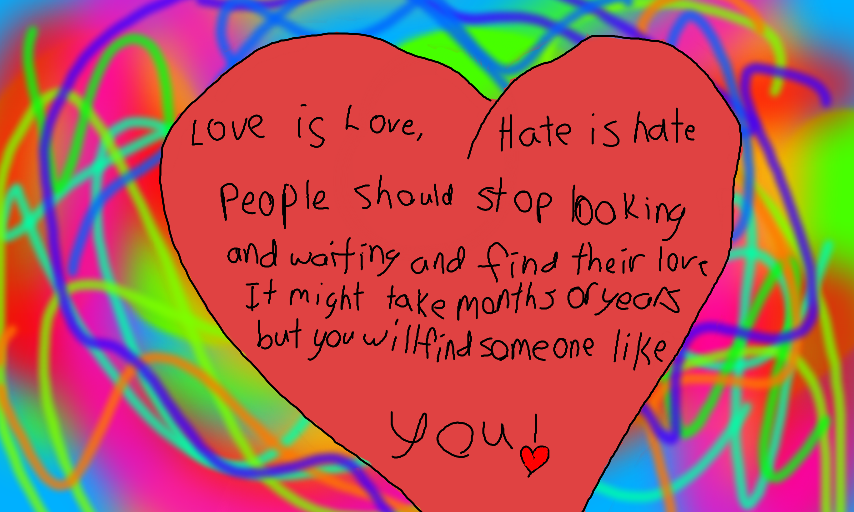 Love is Love, Hate is hate
People should stop looking
and waiting and find their love
It might take months or years
but you will find someone like
you!